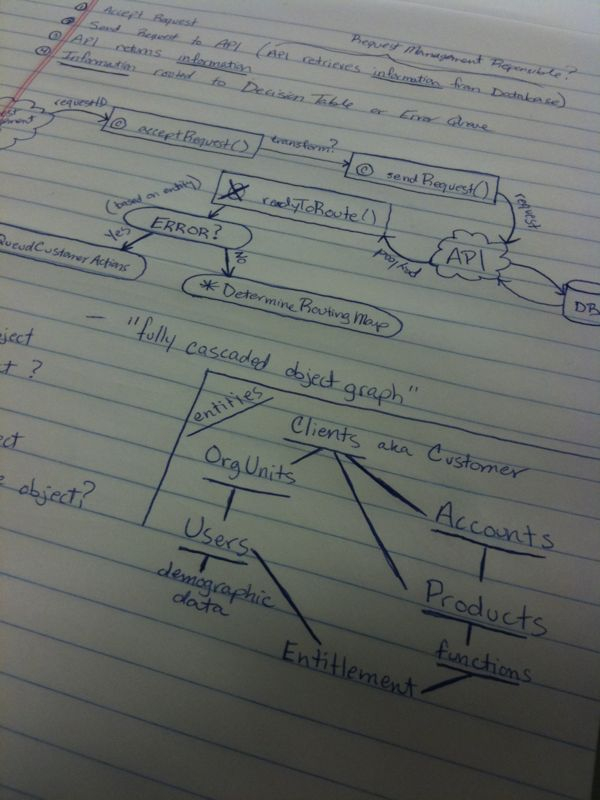 ① Accept Request
② Send Request to API (API retrieves information from Database)
Request Management Responsible?
③ API returns information
④ Information routed to Decision Table or Error Queue
requestID
© acceptRequest()
transform?
© sendRequest()
request
(based on entity)
readyToRoute()
payload
API
DB
ERROR?
Yes
No
CustomerActions
* DetermineRoutingMap
- "fully cascaded object graph"
?
object?
entities
Clients aka Customer
OrgUnits
Accounts
Users
demographic
data
Products
functions
Entitlement